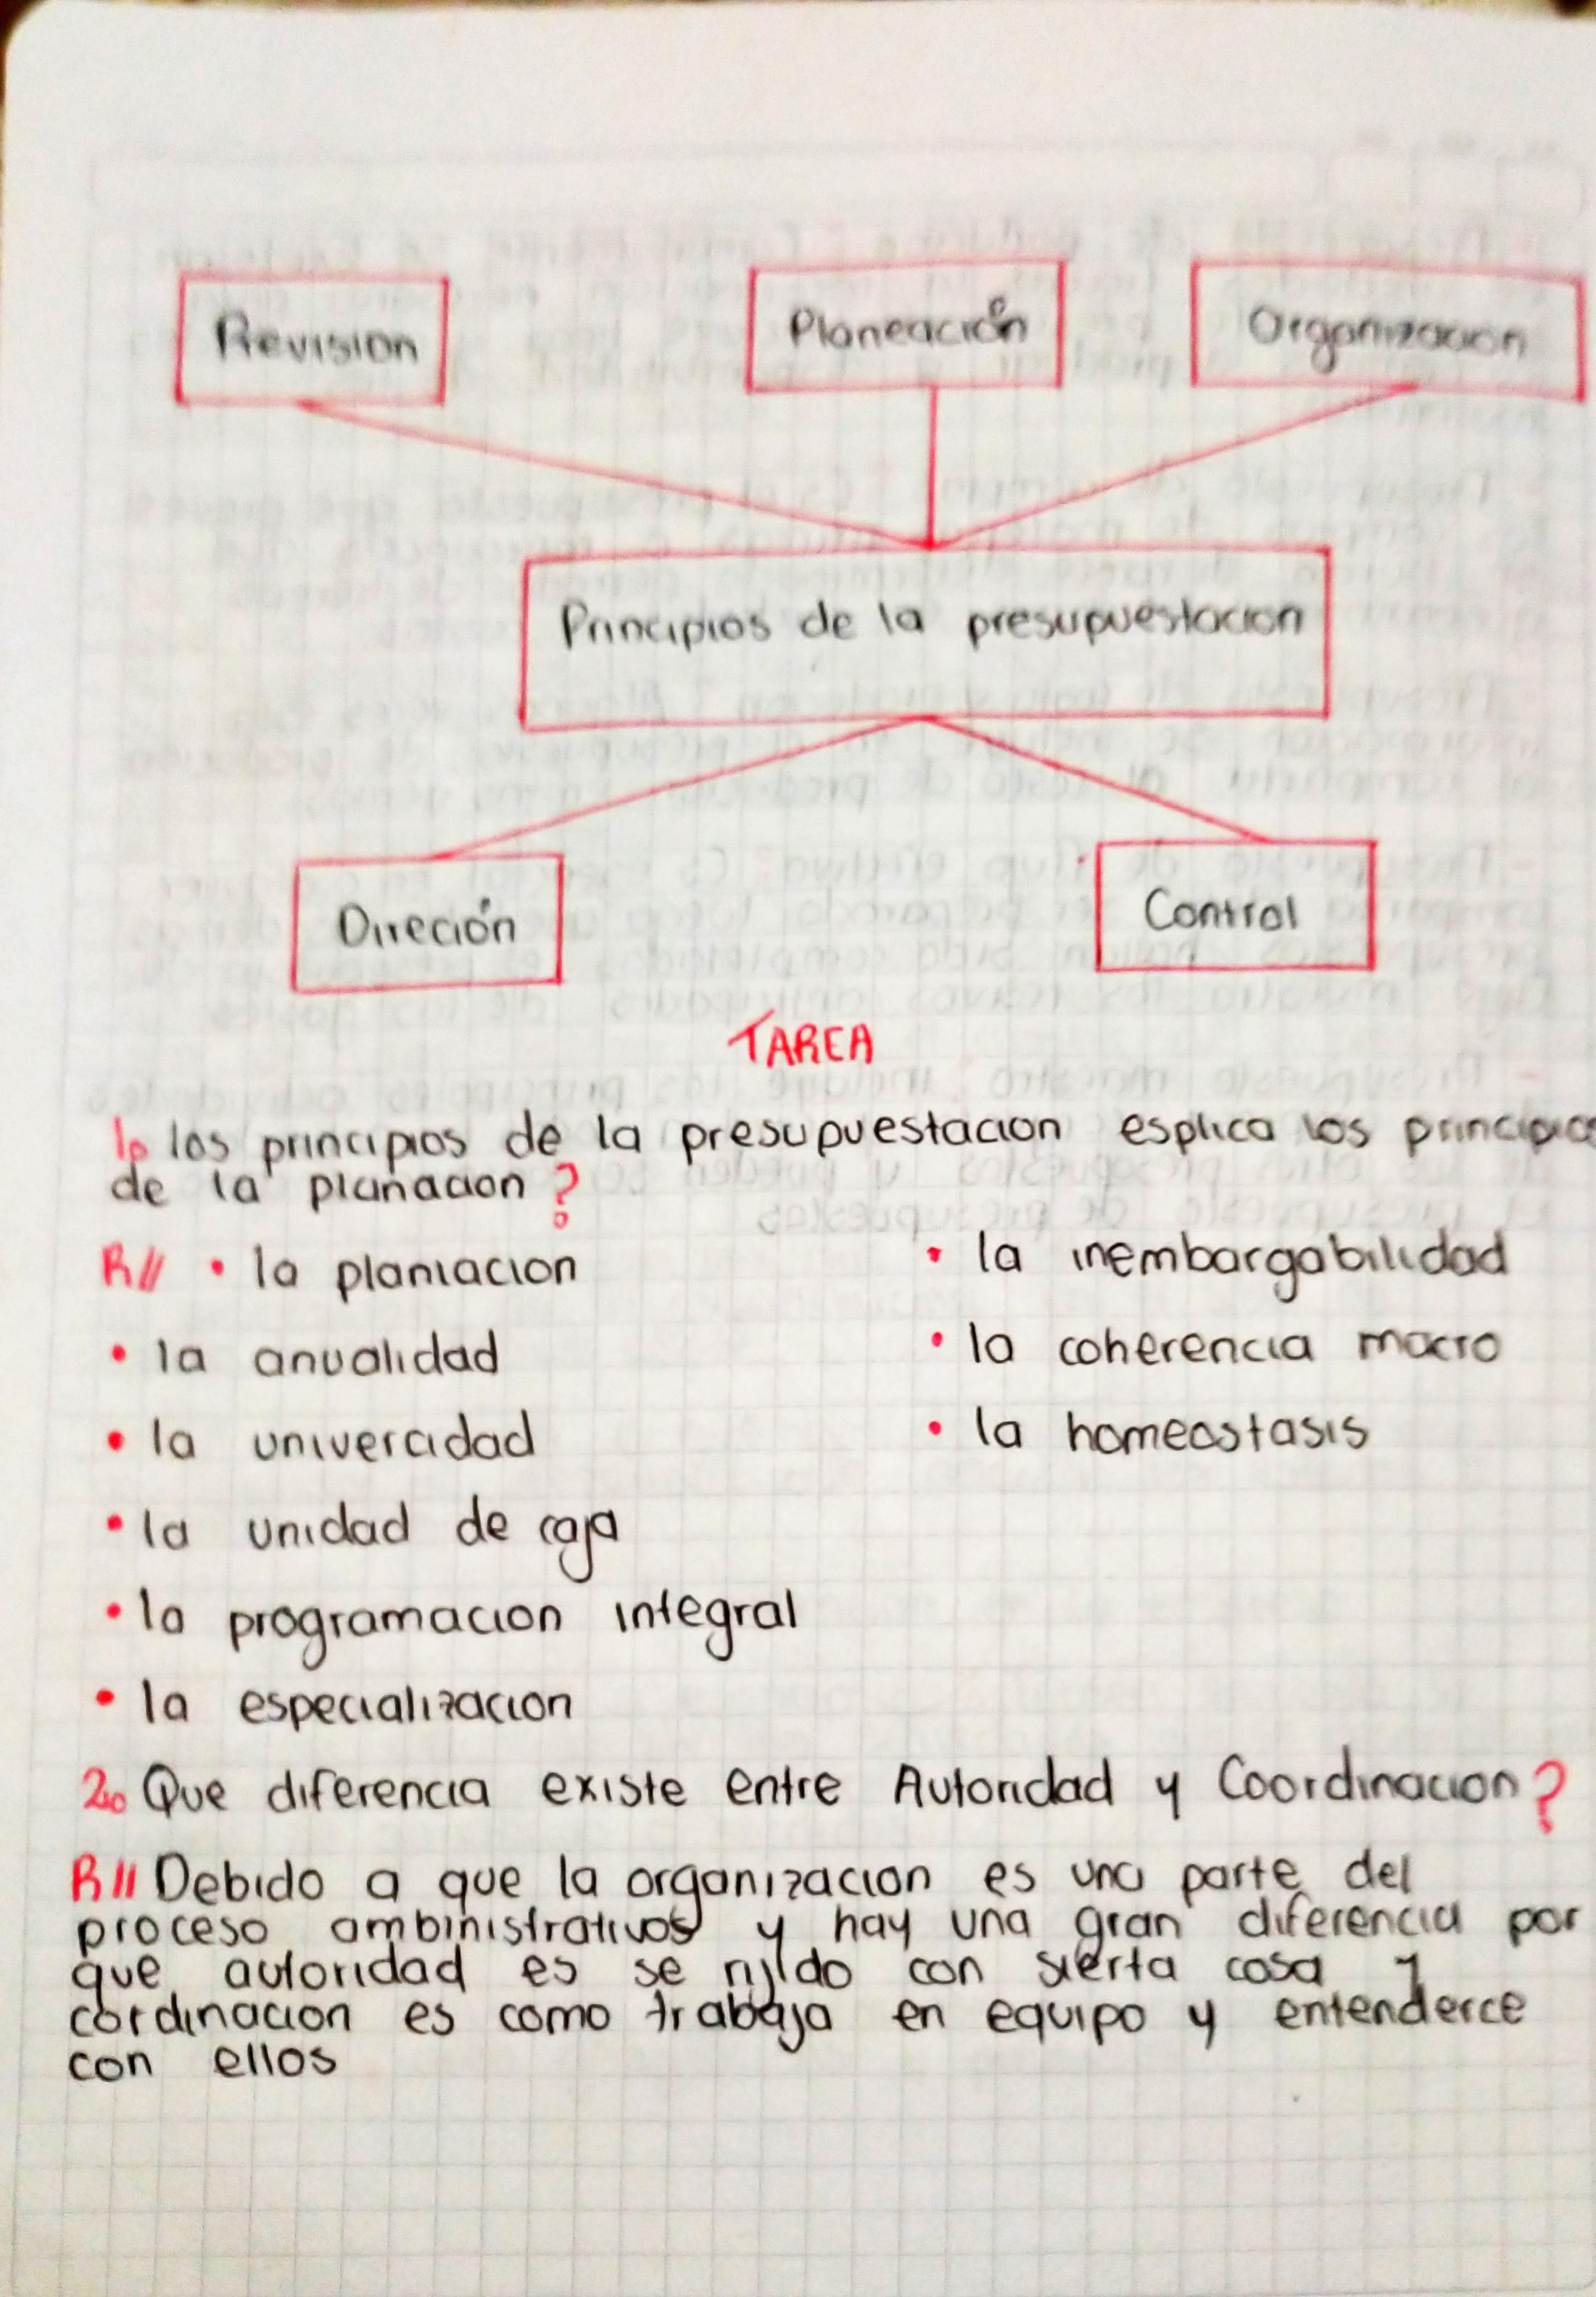 Revision
Planeación
Organizacion
Principios de la presupuestacion
Direción
Control
TAREA
1. los principios de la presupuestacion esplica los principios
de la planacion?
R// • la planiacion
• la anualidad
• la univercidad
• la unidad de caja
• la programacion integral
• la especializacion
• la inembargabilidad
• la coherencia macro
• la homeostasis
2. Que diferencia existe entre Autoridad y Coordinacion?
R// Debido a que la organizacion es una parte del
proceso ambinistrativos y hay una gran diferencia por
que autoridad es se con sierta cosa y
cordinacion es como trabaja en equipo y entenderce
con ellos